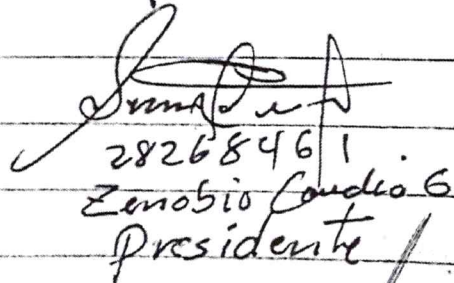 28268461
Zenobio Candia G
Presidente